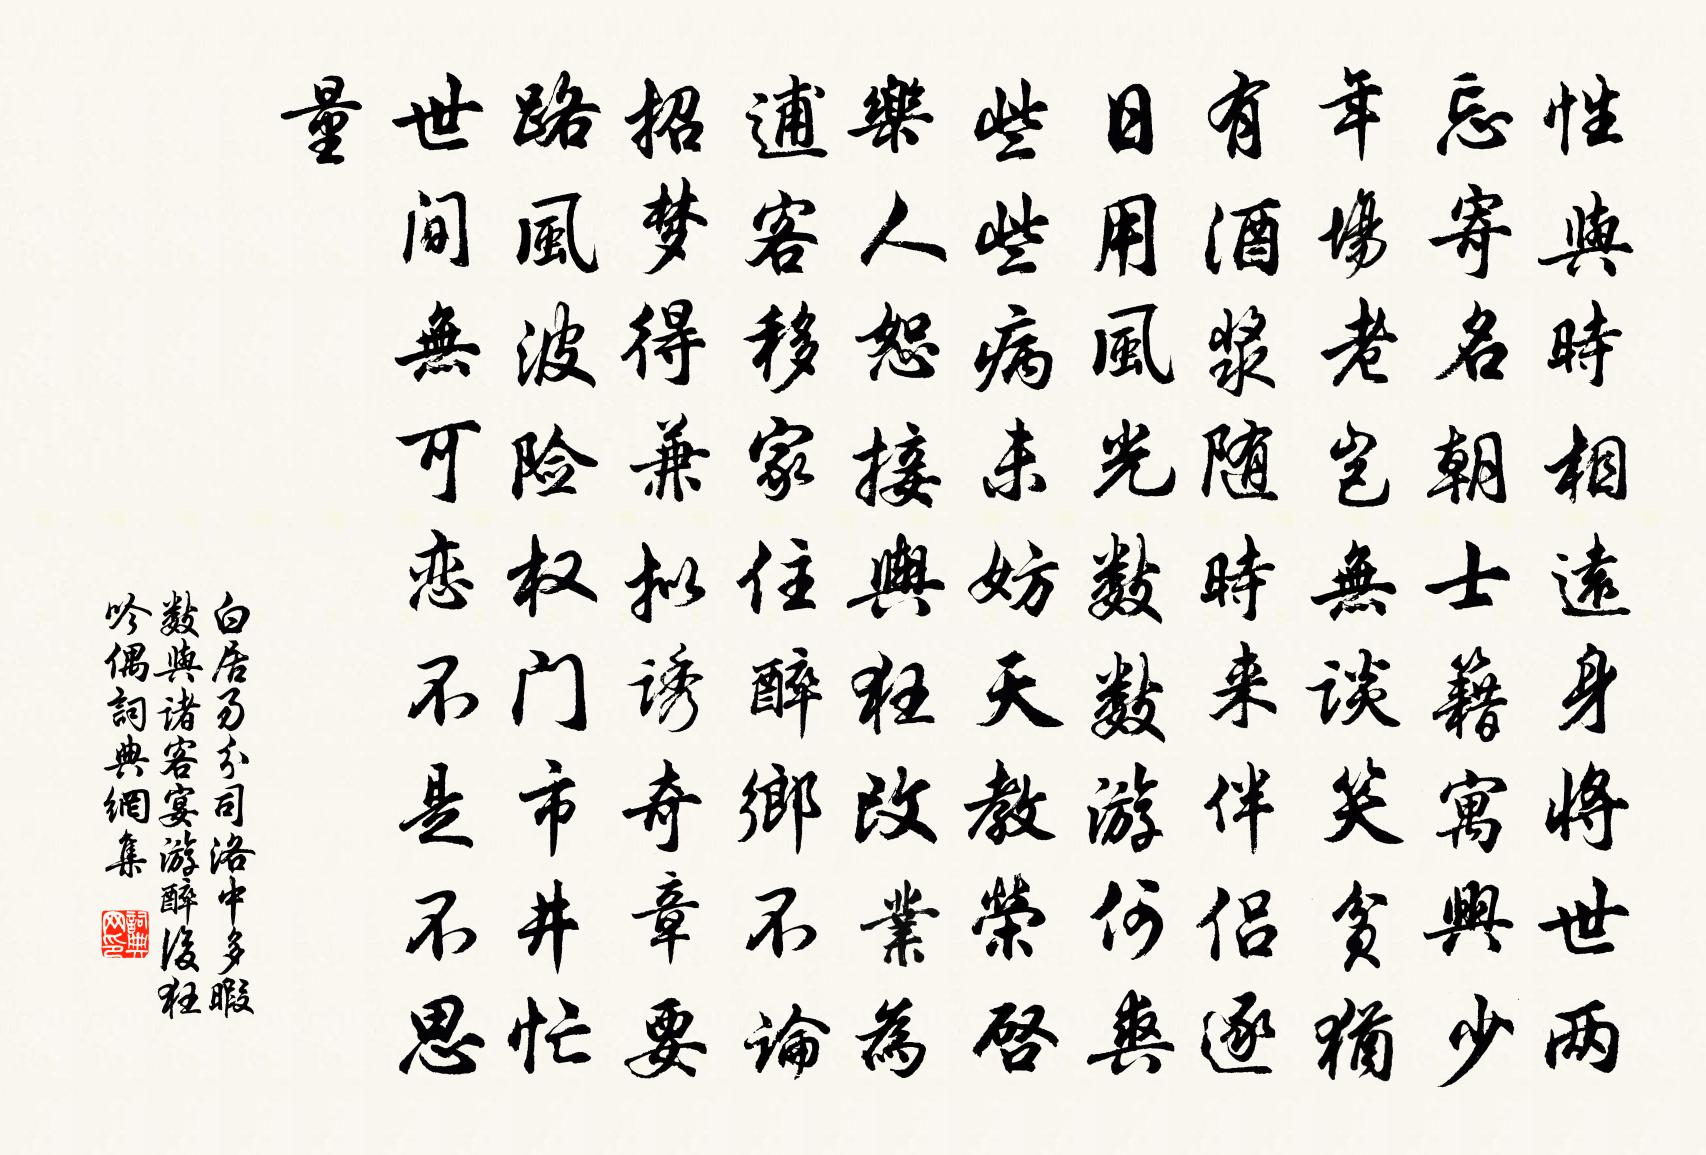 性與時相遠身將世两
忘寄名朝士籍寓興少
年場老岂無談笑貧猶
有酒漿随時来伴侣逐
日用風光數數游何爽
些些病未妨天教榮启
樂人恕接輿狂改業為
逋客移家住醉鄉不論
招梦得兼拟诱奇章要
路風波险权门市井忙
世间無可恋不是不思
量
白居易分司洛中多暇
數與诸客宴游醉後狂
吟偶詞典網集
詞典网印